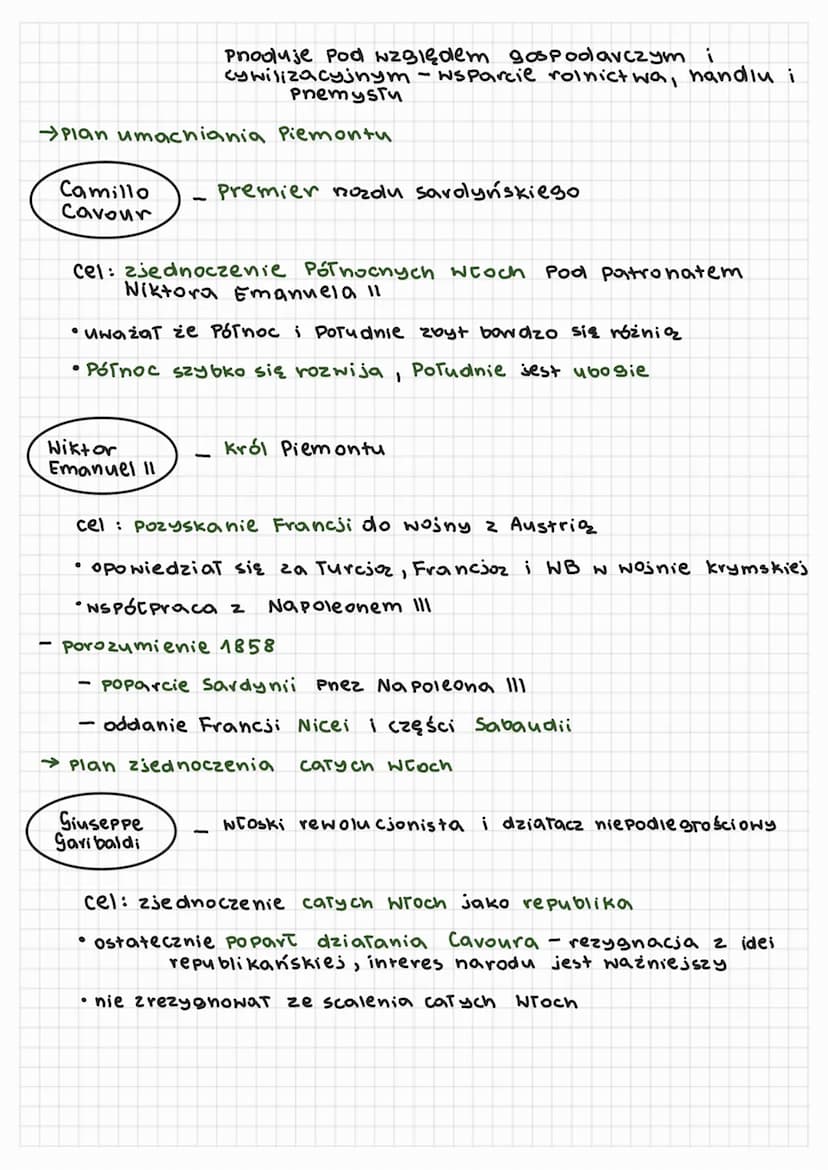 przoduje pod względem gospodarczym i
cywilizacyjnym – wsparcie rolnictwa, handlu i
przemysłu
→ Plan umacniania Piemontu
Camillo
Cavour
– Premier rządu sardyńskiego
cel: zjednoczenie Północnych Włoch pod patronatem
Wiktora Emanuela II
• uważał że Północ i Południe zbyt bardzo się różnią
• Północ szybko się rozwija, Południe jest ubogie
Wiktor
Emanuel II
– Król Piemontu
cel: pozyskanie Francji do wojny z Austrią
• opowiedział się za Turcją, Francją i WB w wojnie krymskiej
• współpraca z Napoleonem III
– porozumienie 1858
– poparcie Sardynii przez Napoleona III
– oddanie Francji Nicei i części Sabaudii
→ Plan zjednoczenia całych Włoch
Giuseppe
Garibaldi
– włoski rewolucjonista i działacz niepodległościowy
cel: zjednoczenie całych Włoch jako republika
• ostatecznie poparł działania Cavoura – rezygnacja z idei
republikańskiej, interes narodu jest ważniejszy
• nie zrezygnował ze scalenia całych Włoch